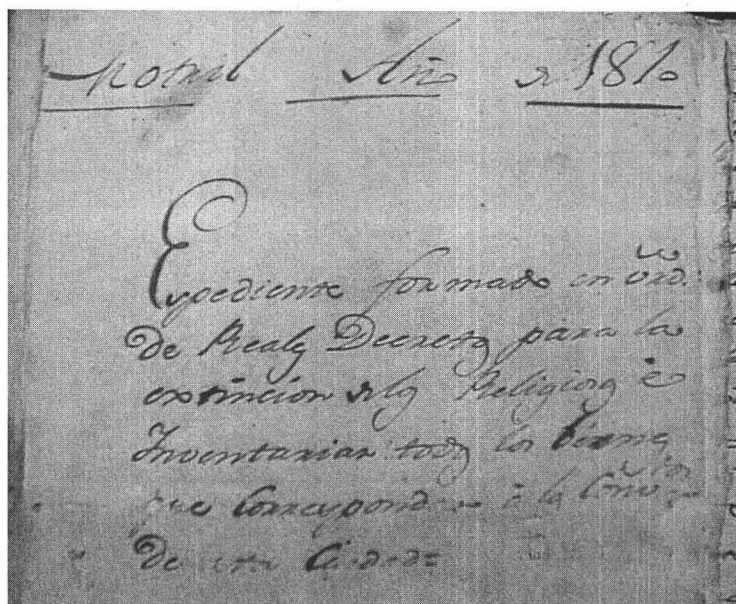 Motril Año de 1810
Expediente formado en vrd.
de Reales Decretos para la
extincion de los Religiosos é
Inventariar todos los bienes
que corresponden á los Convtos
de esta Ciudad=